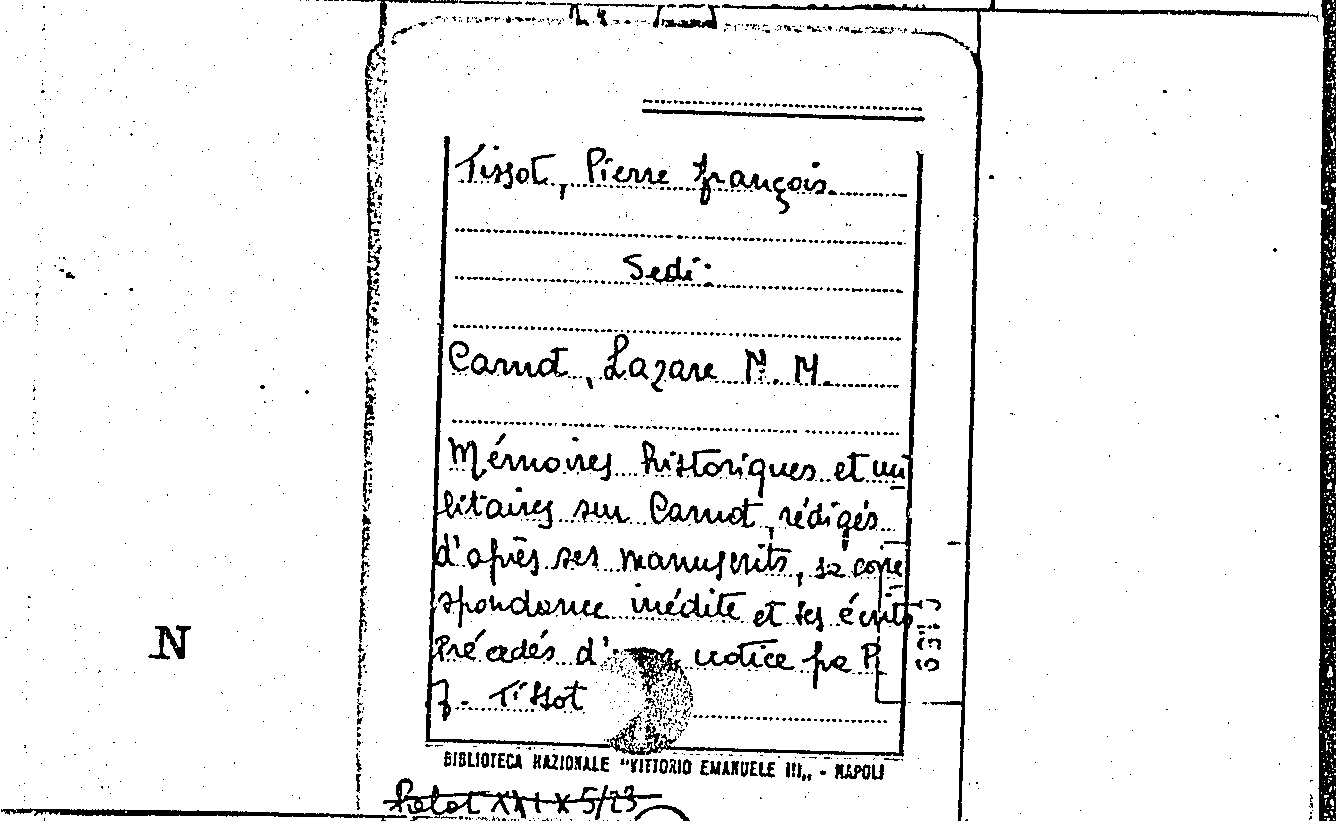 Tissot, Pierre François.
Sedi:
Carnot, Lazare N. M.
Mémoires historiques et mi
litaires sur Carnot, rédigés
d'après ses manuscrits, sa corre
spondance inédite et ses écrits
Précédés d'une notice par P.
F. Tissot
N
BIBLIOTECA NAZIONALE "VITTORIO EMANUELE III„ - NAPOLI